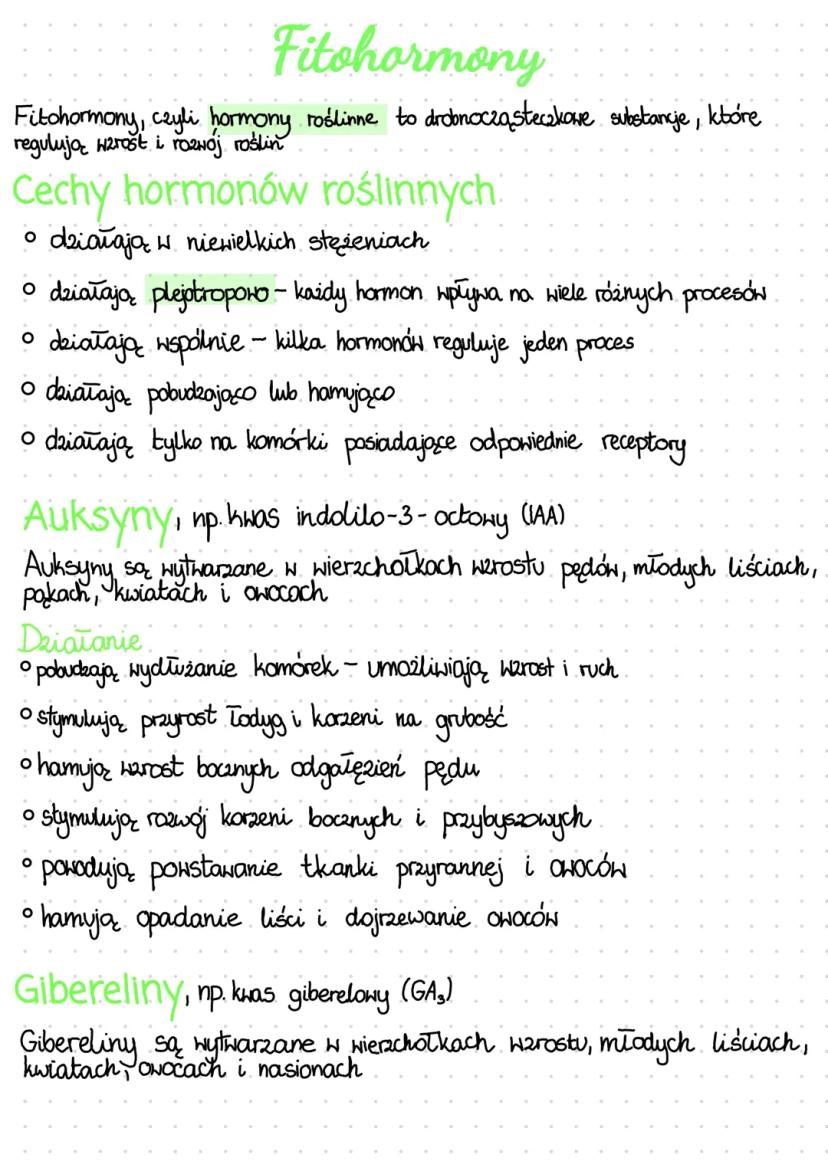 Fitohormony
Fitohormony, czyli hormony roślinne to drobnocząsteczkowe substancje, które
regulują wzrost i rozwój roślin
Cechy hormonów roślinnych
działają w niewielkich stężeniach
działają plejotropowo - każdy hormon wpływa na wiele różnych procesów
działają wspólnie - kilka hormonów reguluje jeden proces
działają pobudzająco lub hamująco
działają tylko na komórki posiadające odpowiednie receptory
Auksyny, np. kwas indolilo-3-octowy (IAA)
Auksyny są wytwarzane w wierzchołkach wzrostu pędów, młodych liściach,
pąkach, kwiatach i owocach
Działanie
pobudzają wydłużanie komórek - umożliwiają wzrost i ruch
stymulują przyrost łodyg i korzeni na grubość
hamują wzrost bocznych odgałęzień pędu
stymulują rozwój korzeni bocznych i przybyszowych
powodują powstawanie tkanki przyrannej i owoców
hamują opadanie liści i dojrzewanie owoców
Gibereliny, np. kwas giberelowy (GA₃)
Gibereliny są wytwarzane w wierzchołkach wzrostu, młodych liściach,
kwiatach, owocach i nasionach